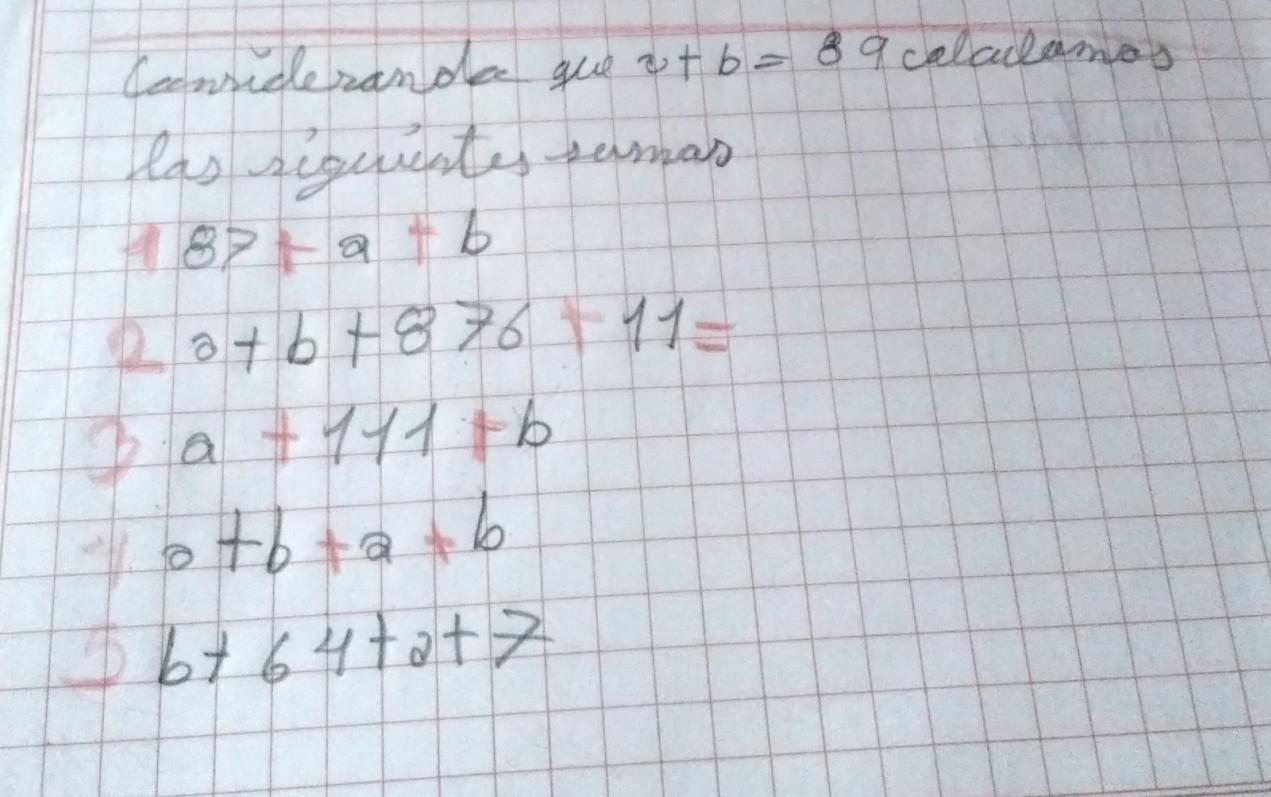 Considerando que a+b= 89 calculamos
las siguientes sumas
1 87+a+b
2 a+b+876+11=
3 a+111+b
4 a+b+a+b
5 b+64+a+7